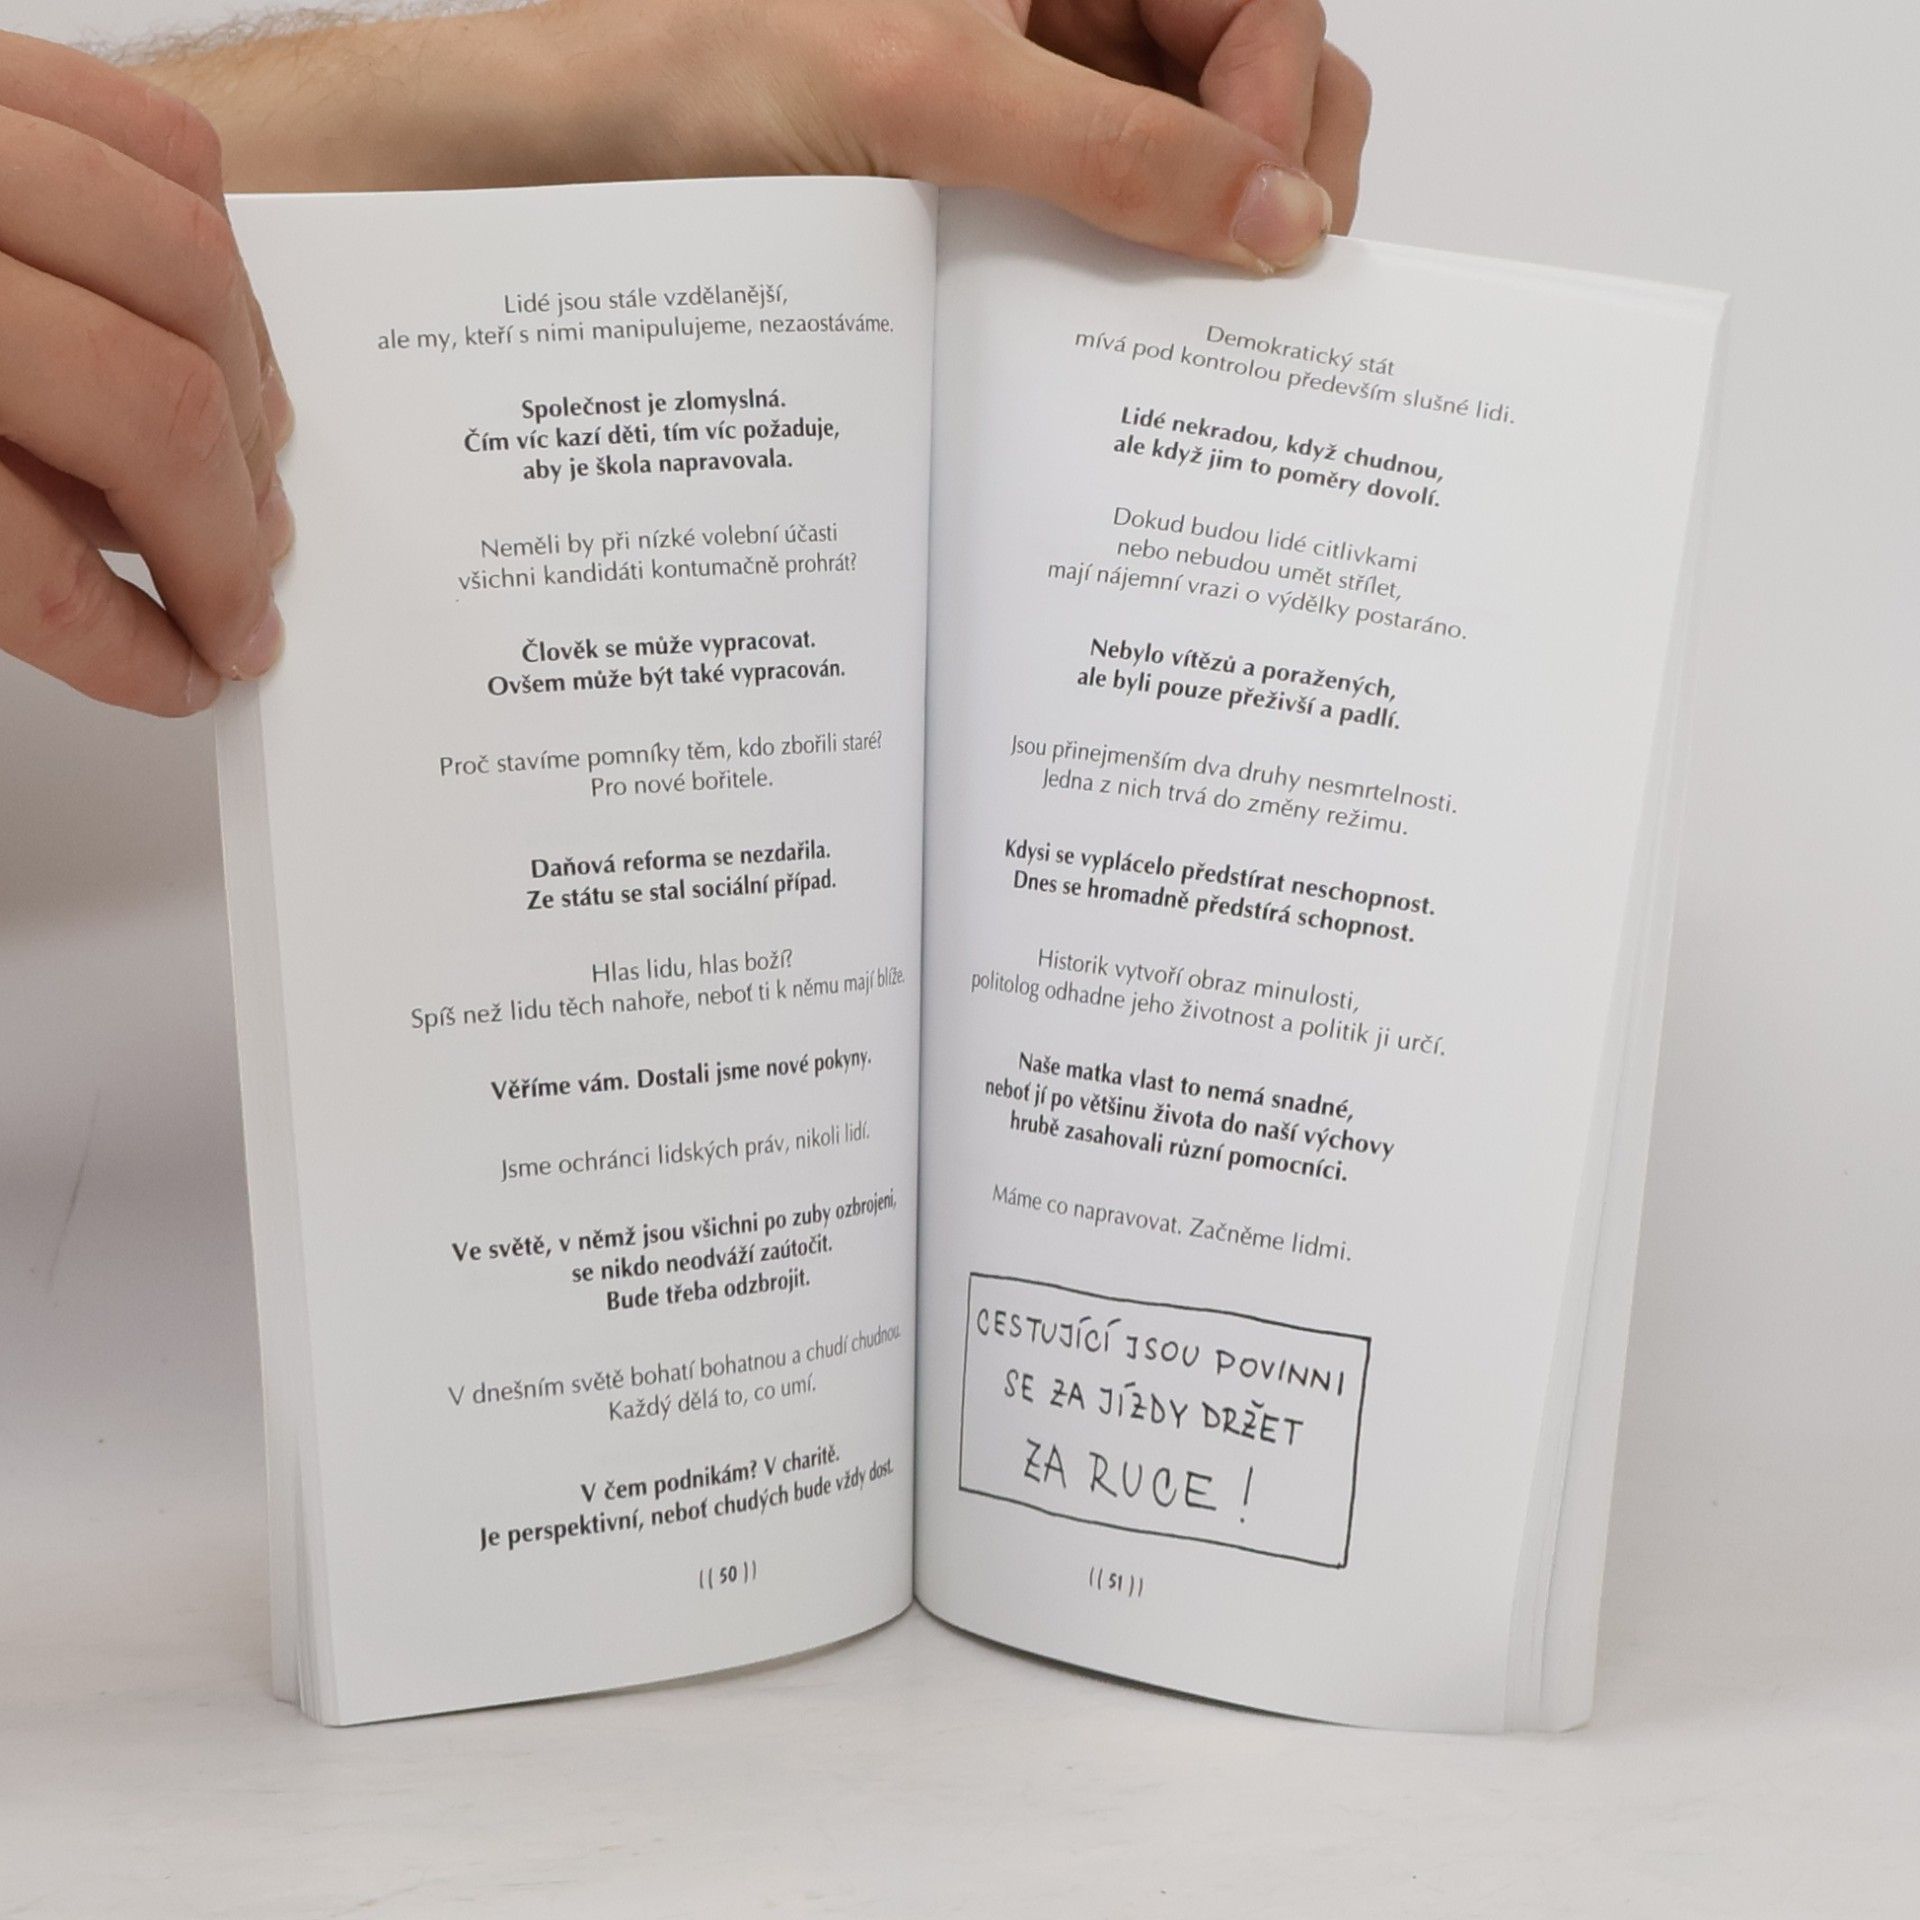 Lidé jsou stále vzdělanější,
ale my, kteří s nimi manipulujeme, nezaostáváme.
Společnost je zlomyslná.
Čím víc kazí děti, tím víc požaduje,
aby je škola napravovala.
Neměli by při nízké volební účasti
všichni kandidáti kontumačně prohrát?
Člověk se může vypracovat.
Ovšem může být také vypracován.
Proč stavíme pomníky těm, kdo zbořili staré?
Pro nové bořitele.
Daňová reforma se nezdařila.
Ze státu se stal sociální případ.
Hlas lidu, hlas boží?
Spíš než lidu těch nahoře, neboť ti k němu mají blíže.
Věříme vám. Dostali jsme nové pokyny.
Jsme ochránci lidských práv, nikoli lidí.
Ve světě, v němž jsou všichni po zuby ozbrojeni,
se nikdo neodváží zaútočit.
Bude třeba odzbrojit.
V dnešním světě bohatí bohatnou a chudí chudnou.
Každý dělá to, co umí.
V čem podnikám? V charitě.
Je perspektivní, neboť chudých bude vždy dost.
((50))
Demokratický stát
mívá pod kontrolou především slušné lidi.
Lidé nekradou, když chudnou,
ale když jim to poměry dovolí.
Dokud budou lidé citlivkami
nebo nebudou umět střílet,
mají nájemní vrazi o výdělky postaráno.
Nebylo vítězů a poražených,
ale byli pouze přeživší a padlí.
Jsou přinejmenším dva druhy nesmrtelnosti.
Jedna z nich trvá do změny režimu.
Kdysi se vyplácelo předstírat neschopnost.
Dnes se hromadně předstírá schopnost.
Historik vytvoří obraz minulosti,
politolog odhadne jeho životnost a politik ji určí.
Naše matka vlast to nemá snadné,
neboť jí po většinu života do naší výchovy
hrubě zasahovali různí pomocníci.
Máme co napravovat. Začněme lidmi.
CESTUJÍCÍ JSOU POVINNI
SE ZA JÍZDY DRŽET
ZA RUCE!
((51))